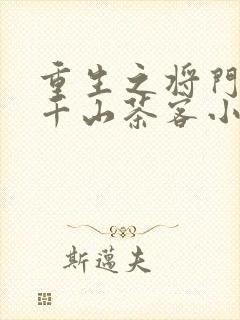 重生之将门
千山茶客小
斯邁夫